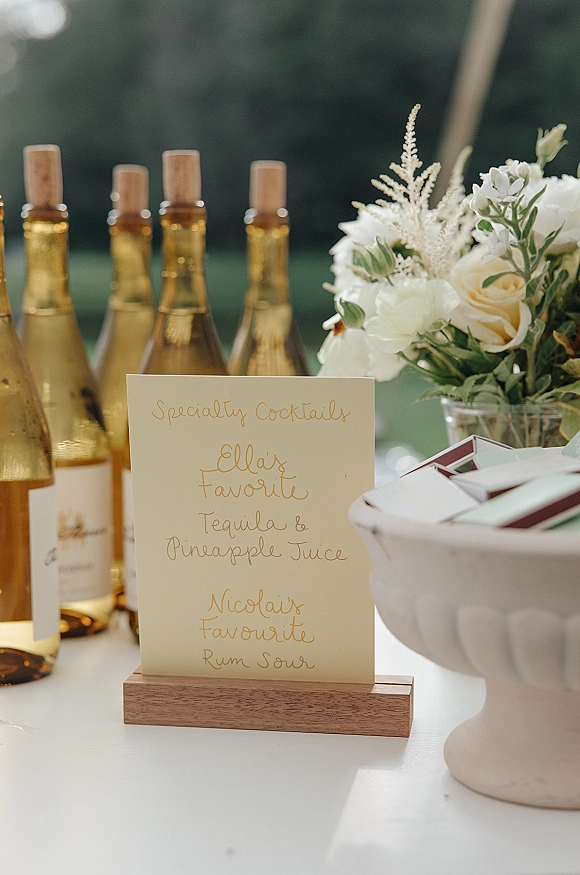 Specialty Cocktails
Ella's
Favorite
Tequila &
Pineapple Juice
Nicolai's
Favourite
Rum Sour